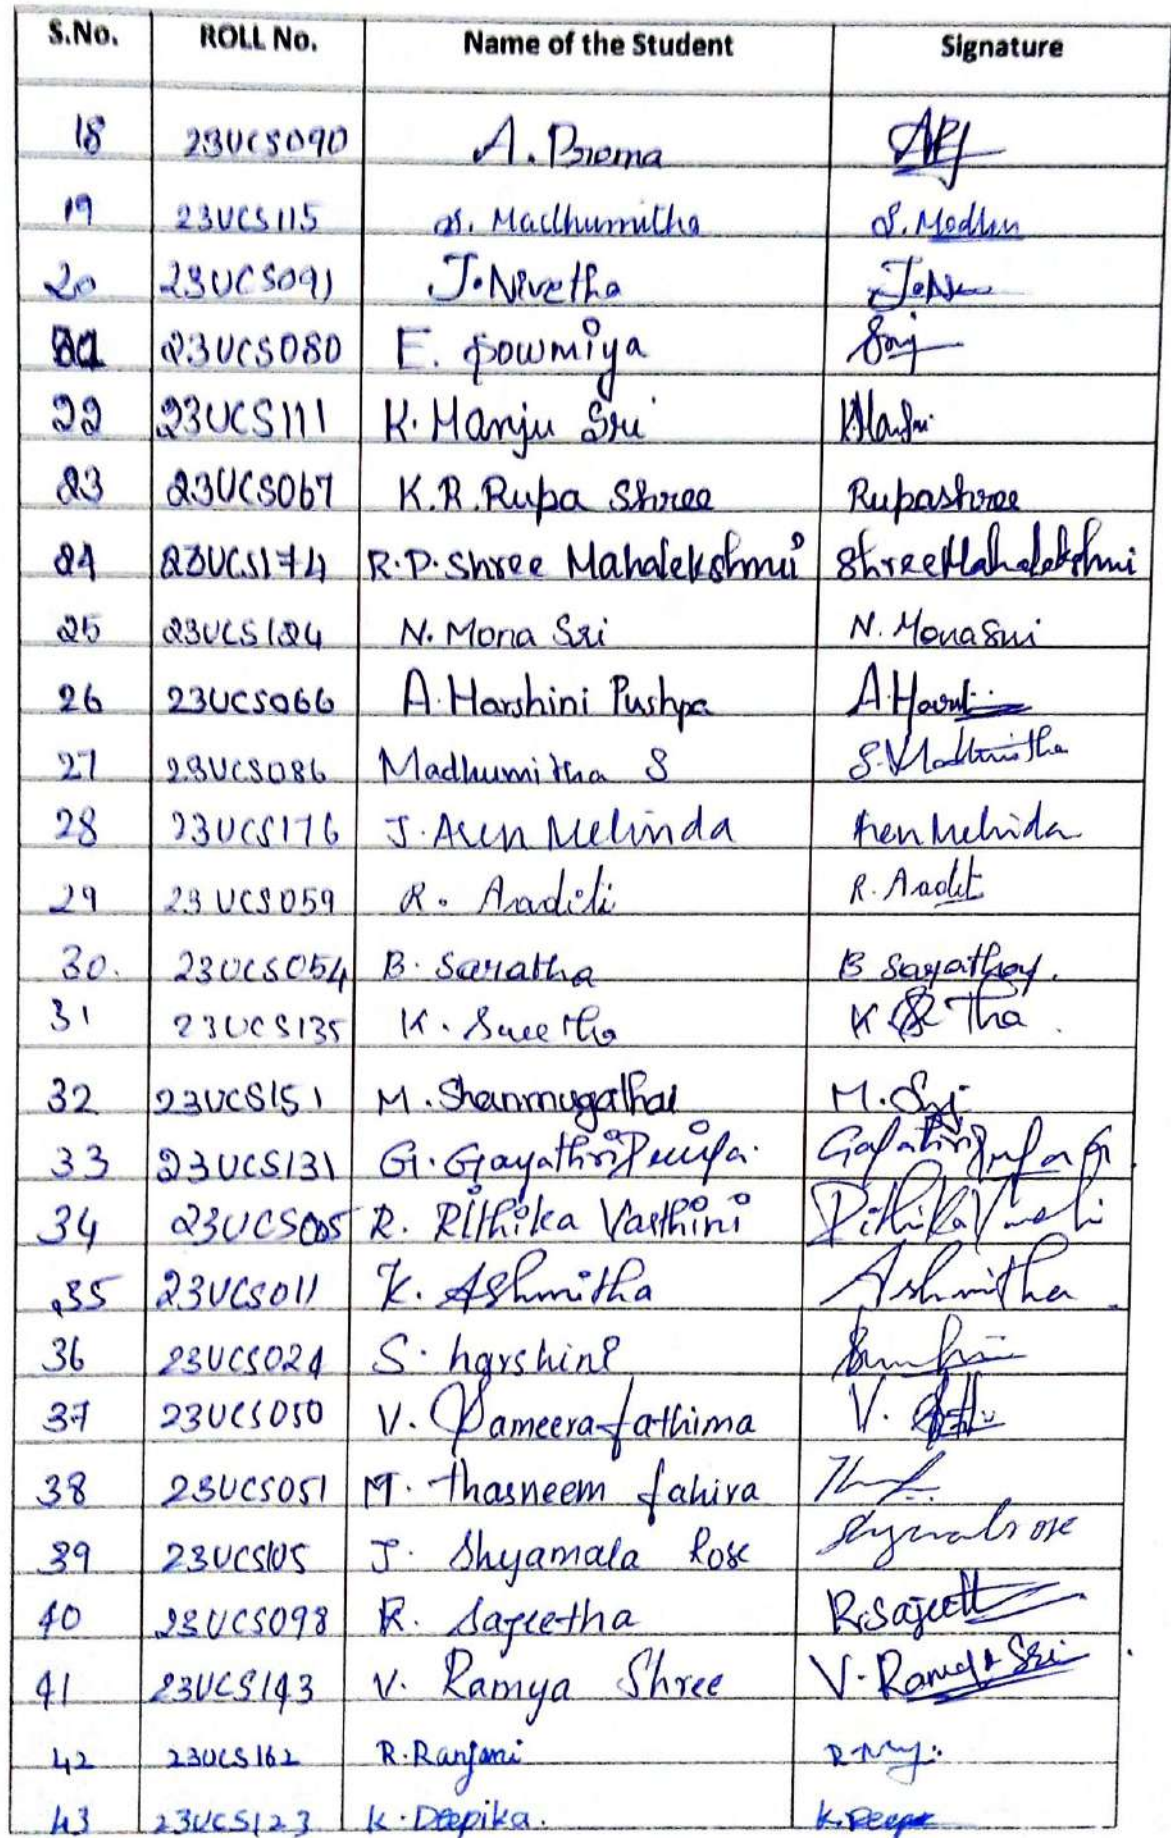 S.No. ROLL No. Name of the Student Signature
18 23UCS090 A. Prema
19 23UCS115 S. Madhumitha S. Madhu
20 23UCS091 J. Nivetha
21 23UCS080 E. Sowmiya
22 23UCS111 K. Manju Sri
23 23UCS067 K.R. Rupa Shree Rupashree
24 23UCS174 R.P. Shree Mahalekshmii ShreeMahalekshmi
25 23UCS124 N. Mona Sri N. Mona Sri
26 23UCS066 A. Harshini Pushpa
27 23UCS086 Madhumitha S S. Madhumitha
28 23UCS176 J. Aren Melinda Aren Melinda
29 23UCS059 R. Aaditi R. Aadit
30. 23UCS054 B. Saratha
31 23UCS135 K. Swetha
32 23UCS151 M. Shanmugathai
33 23UCS131 G. Gayathri
34 23UCS005 R. Rithika Varthini
35 23UCS011 K. Ashmitha Ashmitha
36 23UCS024 S. harshini
37 23UCS050 V. Sameera fathima
38 23UCS051 M. thasneem fahira
39 23UCS105 J. Shyamala Rose
40 23UCS098 R. Sajeetha R. Sajeeth
41 23UCS143 V. Ramya Shree V. Ramya Sri
42 23UCS162 R. Ranjani
43 23UCS123 K. Deepika. K. Deepi